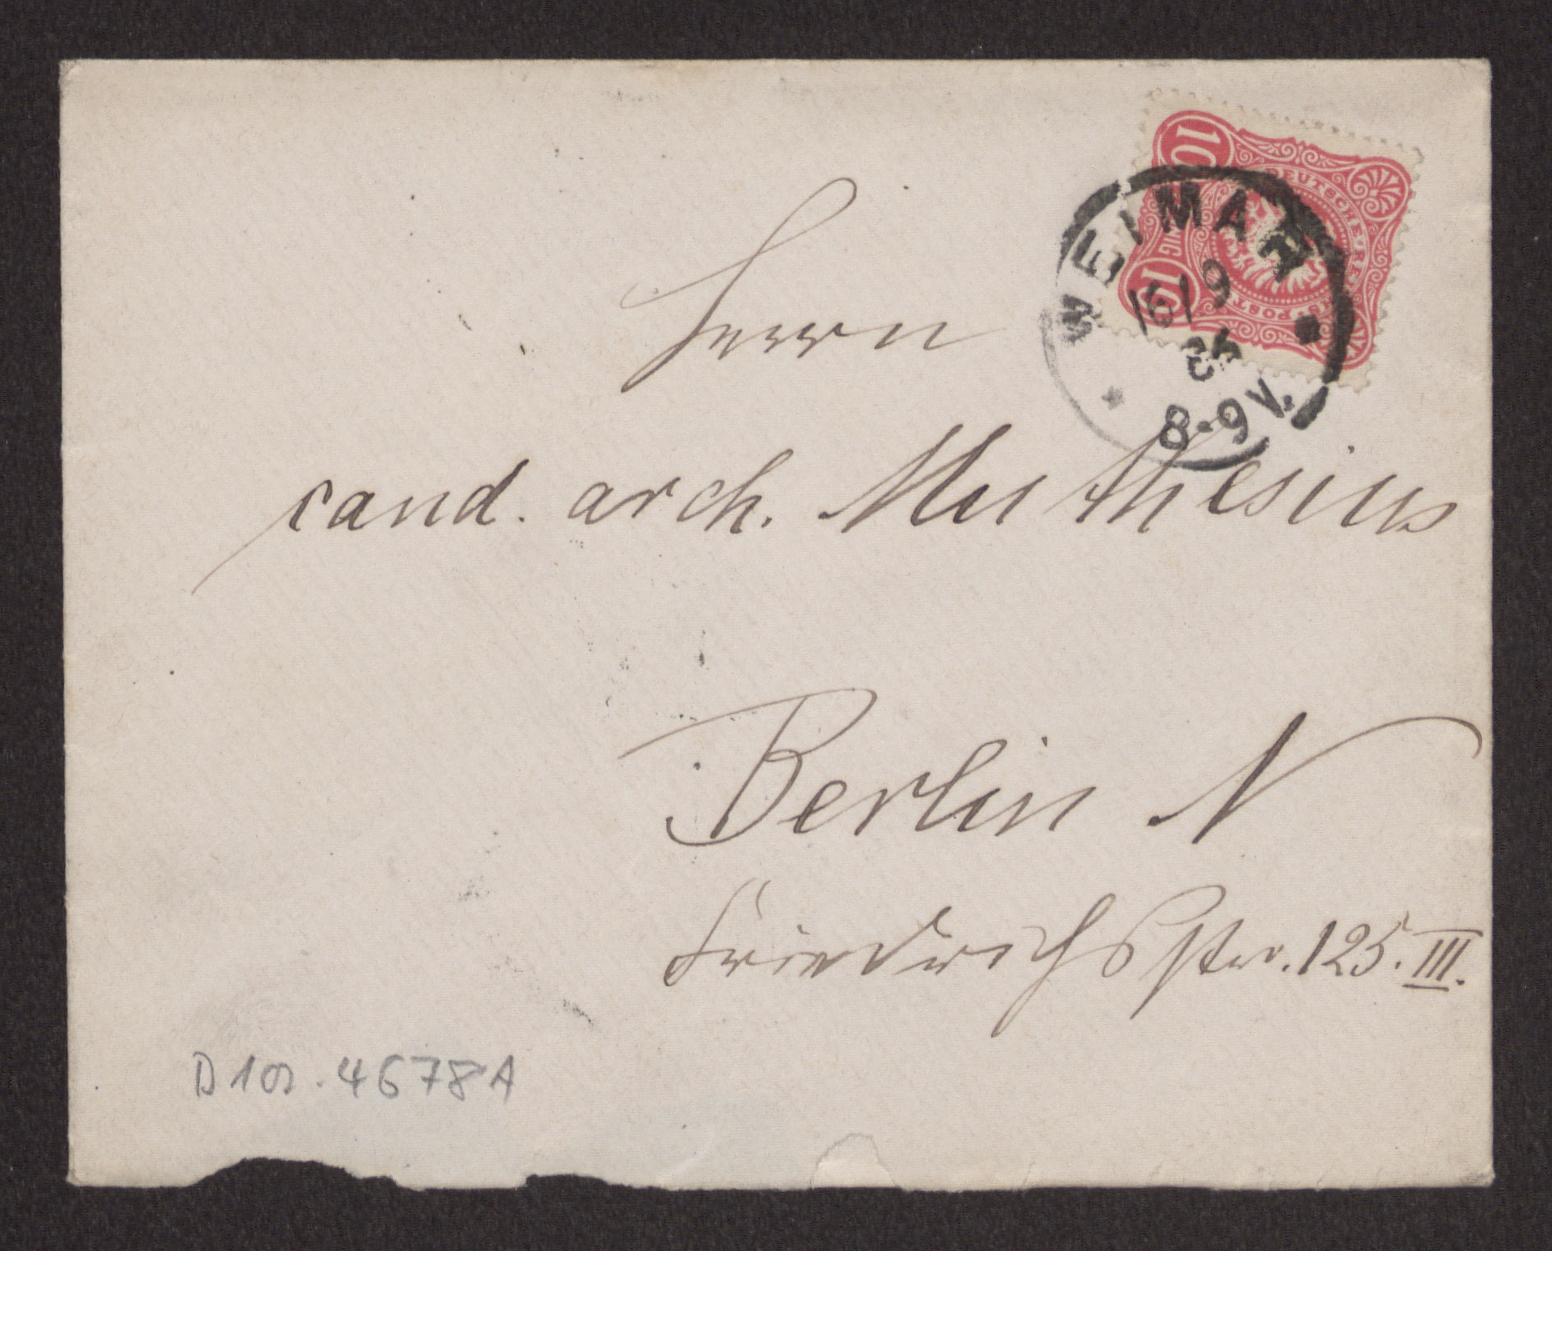 10
DEUTSCHE RE
POST
10
WEIMAR
16/9
86
8-9V.
Herrn
cand. arch. Muthesius
Berlin N
Friedrichsstr. 125. III.
D 102-4678A